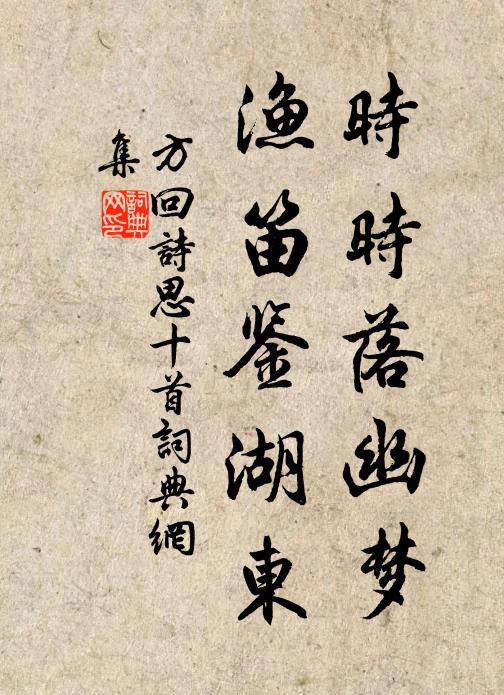 時時落幽梦
漁笛鉴湖東
方回詩思十首詞典網
集
詞典
网印